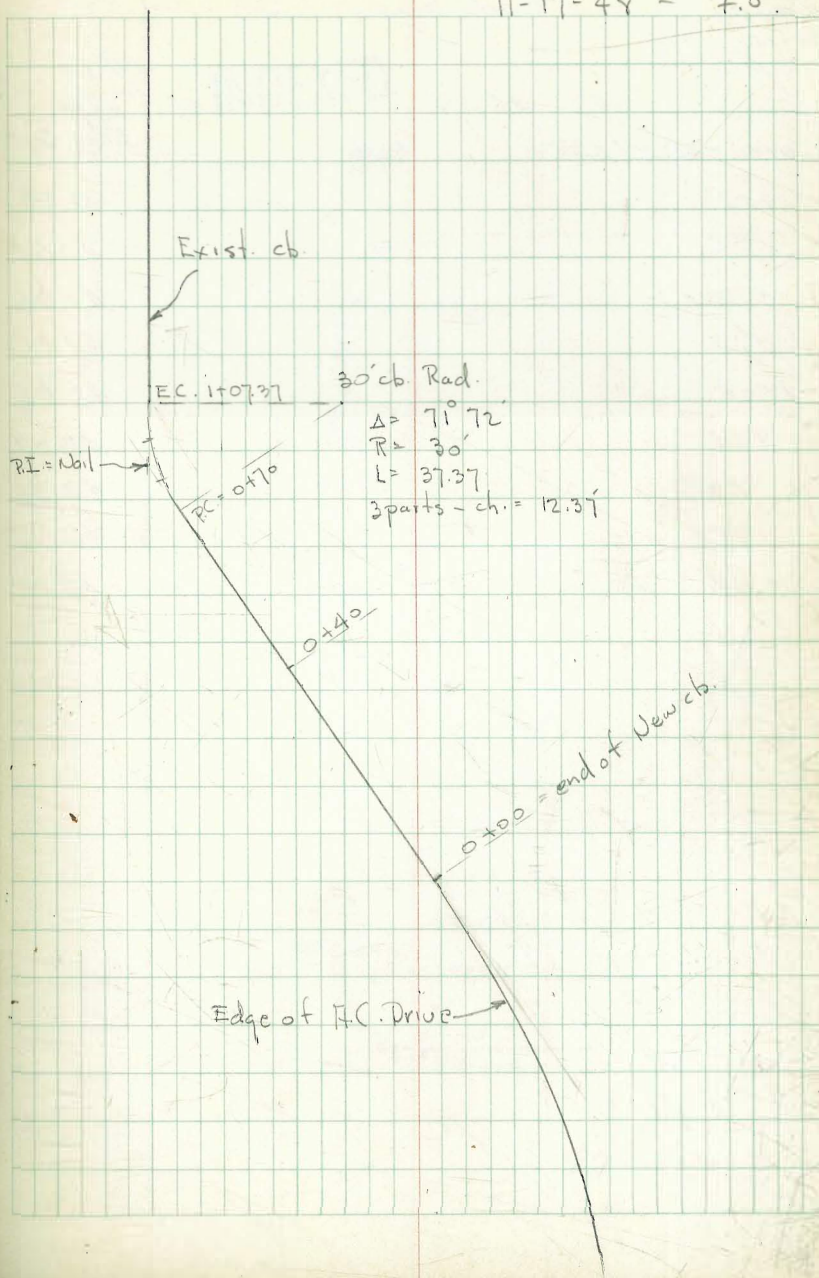 11-17-48 -
Exist. cb.
E.C. 1+07.37
30' cb. Rad.
Δ= 71° 72'
R= 30'
L= 37.37
3 parts - ch. = 12.37'
P.I. = Nail
P.C = 0+70
0+40
0+00 = end of New cb.
Edge of A.C. Drive